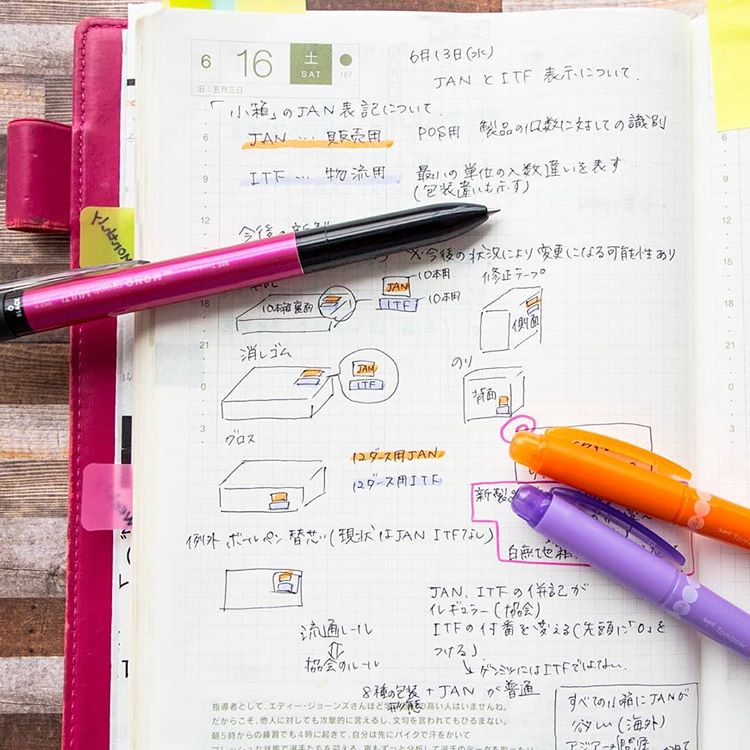 6 16 土 SAT 167
旧:五月三日
6月13日(水)
JANとITF 表示について.
「小箱」のJAN表記について
JAN … 販売用 POS用 製品の個数に対しての識別
ITF … 物流用 最小の単位の入数違いを表す
(包装違いも示す)
今後の新製
※今後の状況により変更になる可能性あり
10本用 修正テープ
JAN
10本箱裏面 ITF 10本用
側面
消しゴム のり
JAN
ITF
背面
グロス
12ダース用JAN
12ダース用ITF
新製
白無地箱
例外 ボールペン替芯(現状はJAN ITFなし)
JAN、ITFの併記が
イレギュラー(協会)
流通ルール ITFの付番を変える(先頭に「0」を
つける)
協会のルール
8種の包装形態 + JAN が普通
すべての小箱にJANが
欲しい(海外)
指導者として、エディー・ジョーンズさんほど
高い人はいませんね。
だからこそ、他人に対しても攻撃的に言えるし、文句を言われてもひるまない。
朝5時からの練習でも4時に起きて、自分は先にバイクで汗をかいて
MONO
see Tombow
see Tombow